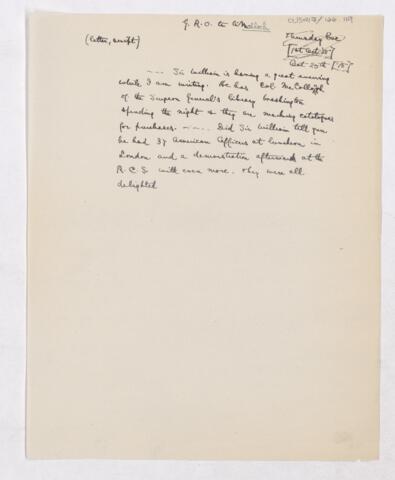 G.R.O. to A Malloch
(letter, script)
Thursday Eve
[1st Oct 18]
Oct 25th [18]
---- Sir William is having a great evening
while I am writing. He has Col. McCulloch
of the Surgeon General's Library Washington
spending the night & they are marking catalogues
for purchases. -- -- . Did Sir William tell you
he had 37 American Officers at luncheon in
London and a demonstration afterwards at the
R.C.S. with even more. They were all
delighted